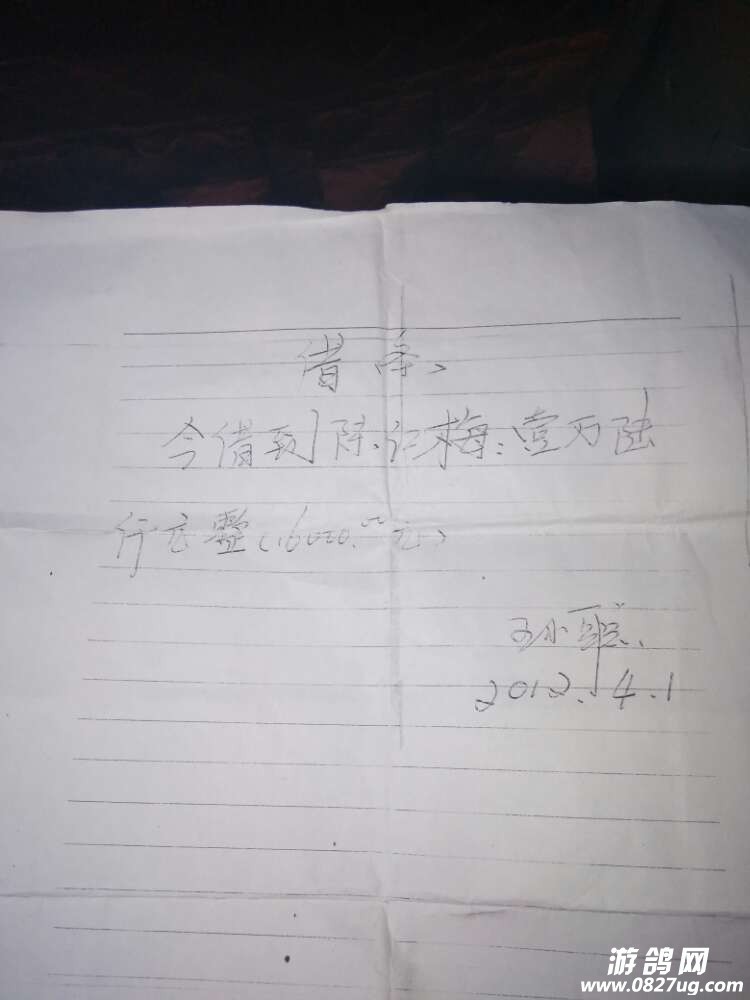 借条
今借到陈红梅:壹万陆
仟元整(16000.00元)
2012.4.1
游鸽网
www.0827ug.com